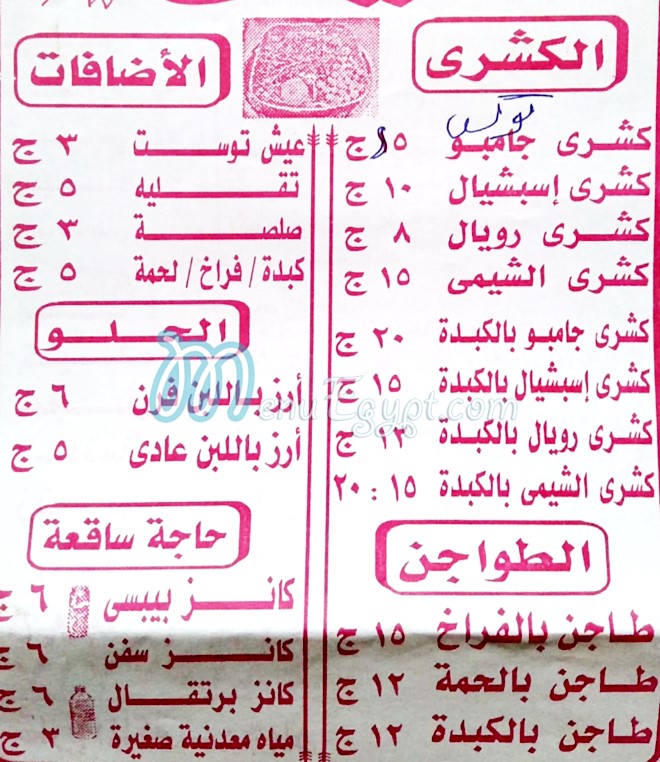 الكشرى
كوكس
كشرى جامبو ١٥ ج
كشرى إسبشيال ١٠ ج
كشرى رويال ٨ ج
كشرى الشيمى ١٥ ج
كشرى جامبو بالكبدة ٢٠ ج
كشرى إسبشيال بالكبدة ١٥ ج
كشرى رويال بالكبدة ١٣ ج
كشرى الشيمى بالكبدة ١٥ : ٢٠
الطواجن
طاجن بالفراخ ١٥ ج
طاجن بالحمة ١٢ ج
طاجن بالكبدة ١٢ ج
الأضافات
عيش توست ٣ ج
تقليه ٥ ج
صلصة ٣ ج
كبدة / فراخ / لحمة ٥ ج
الحلو
أرز باللبن فرن ٦ ج
أرز باللبن عادى ٥ ج
حاجة ساقعة
كانز بيبسى ٦ ج
كانز سفن ٦ ج
كانز برتقال ٦ ج
مياه معدنية صغيرة ٣ ج
MenuEgypt.com